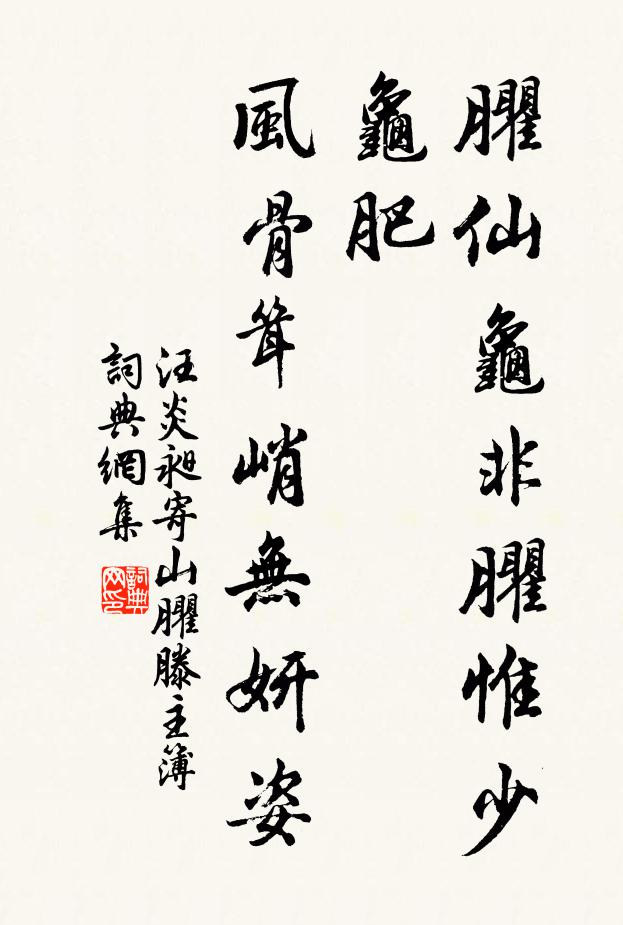 臞仙龜非臞惟少
龜肥
風骨聳峭無妍姿
汪炎昶寄山臞滕主簿
詞典網集
詞典網印